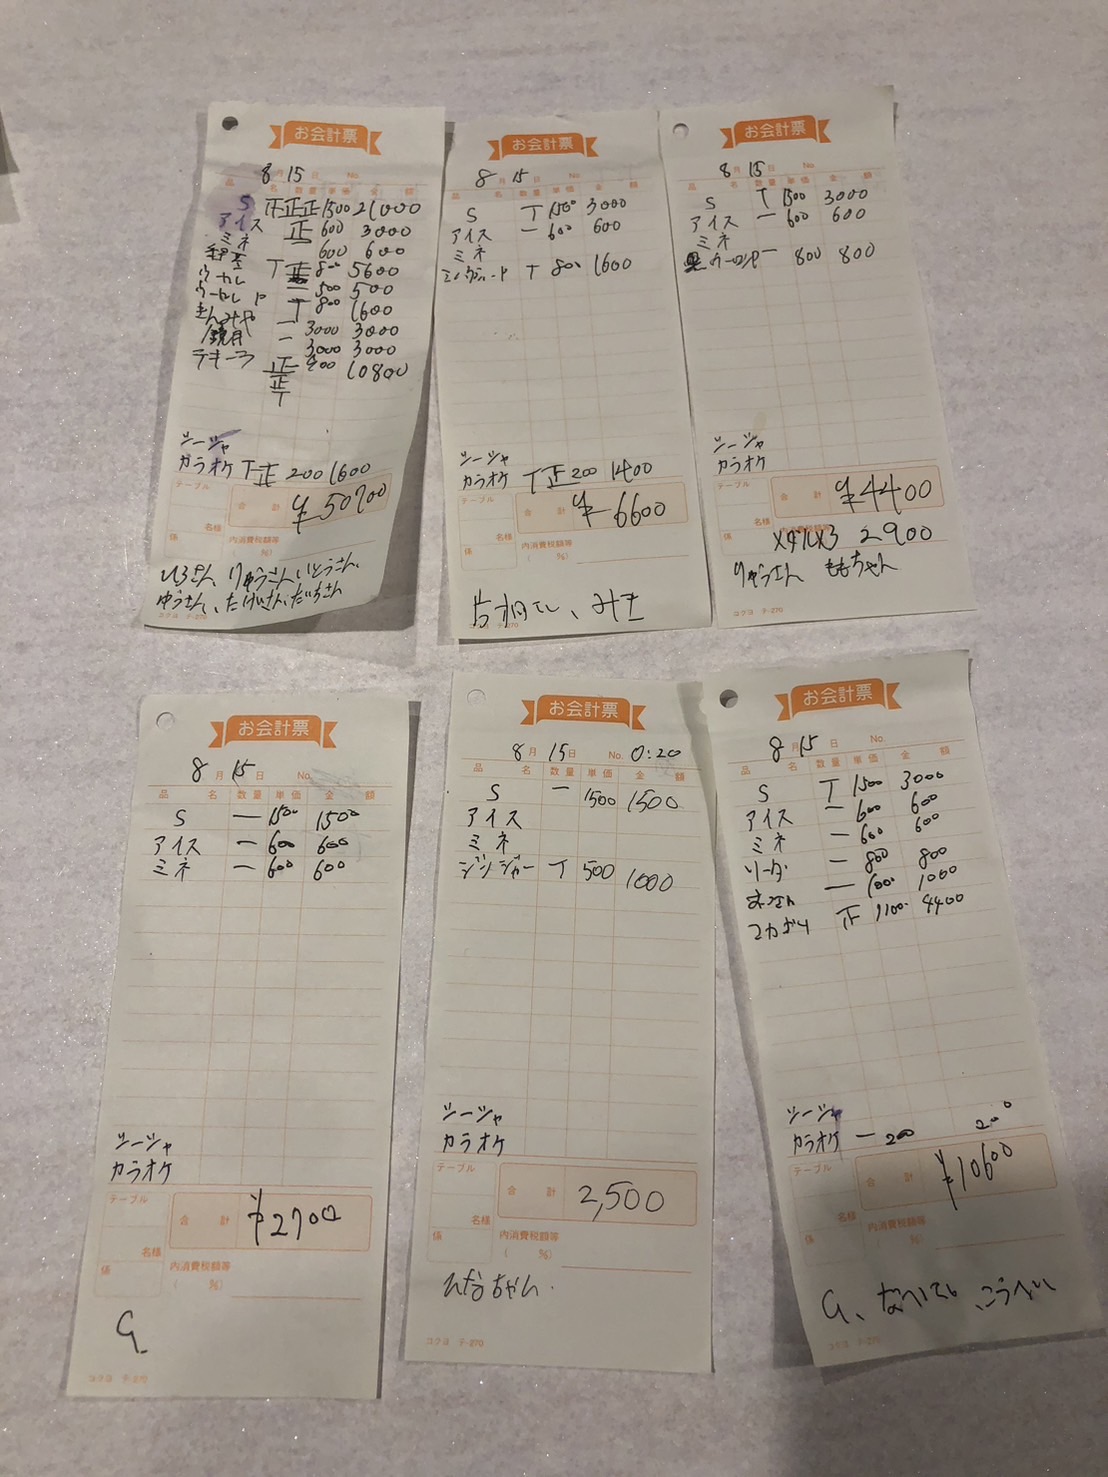 お会計票
8月 15日 No.
品 名 数量 単価 金 額
S 正正正 1500 21000
アイス 正 600 3000
ミネ 600 600
T正 800 5600
ウーカレ 一 500 500
T 800 1600
きんみや 一 3000 3000
鏡月 一 3000 3000
テキーラ 正正T 900 10800
シーシャ
カラオケ T正 200 1600
テーブル 合 計 ¥50700
名様
係 内消費税額等
( %)
ひろさん、りゅうさん、いとうさん、
ゆうさん、たけいさん、だいちさん
コクヨ テ-270
お会計票
8月 15日 No.
品 名 数量 単価 金 額
S T 1500 3000
アイス 一 600 600
ミネ
T 800 1600
シーシャ
カラオケ T正 200 1400
テーブル 合 計 ¥6600
名様
係 内消費税額等
( %)
片桐さん、みき
コクヨ テ-270
お会計票
8月 15日 No.
品 名 数量 単価 金 額
S T 1500 3000
アイス 一 600 600
ミネ
一 800 800
シーシャ
カラオケ
テーブル 合 計 ¥4400
名様 内消費税額等
係 メダルx3 2900
りゅうさん ももちゃん
コクヨ テ-270
お会計票
8月 15日 No.
品 名 数量 単価 金 額
S 一 1500 1500
アイス 一 600 600
ミネ 一 600 600
シーシャ
カラオケ
テーブル 合 計 ¥2700
名様
係 内消費税額等
( %)
G
コクヨ テ-270
お会計票
8月 15日 No. 0:20
品 名 数量 単価 金 額
S 一 1500 1500
アイス
ミネ
ジンジャー T 500 1000
シーシャ
カラオケ
テーブル 合 計 2,500
名様
係 内消費税額等
( %)
ひなちゃん.
コクヨ テ-270
お会計票
8月 15日 No.
品 名 数量 単価 金 額
S T 1500 3000
アイス 一 600 600
ミネ 一 600 600
ソーダ 一 800 800
一 1000 1000
正 1100 4400
シーシャ
カラオケ 一 200 200
テーブル 合 計 ¥10600
名様
係 内消費税額等
( %)
G、 こうへい
コクヨ テ-270